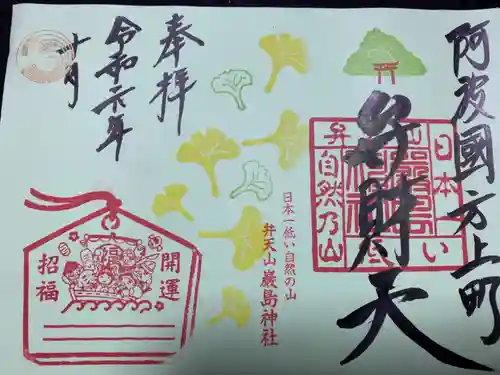 阿波國方上町
弁財天
日本一低い自然乃山
弁天山
奉拝
令和六年
十月
日本一低い自然の山
弁天山 厳島神社
開運
招福